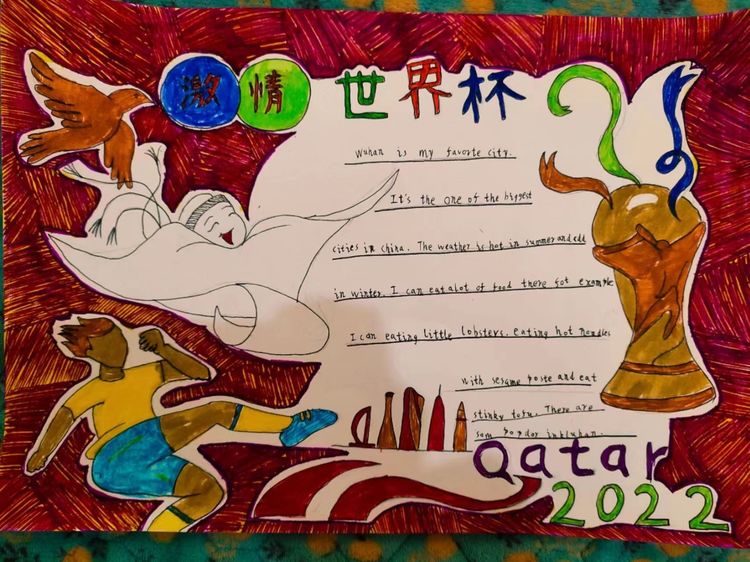 激情世界杯
Wuhan is my favorte city.
It's the one of the biggest
cities in china. The weather is hot in summer and
in winter. I can eat a lot of food there for example
I can eating little lobsters. eating hot noodles
with sesame poste and eat
stinky tofu. There are
in Wuhan.
Qatar
2022